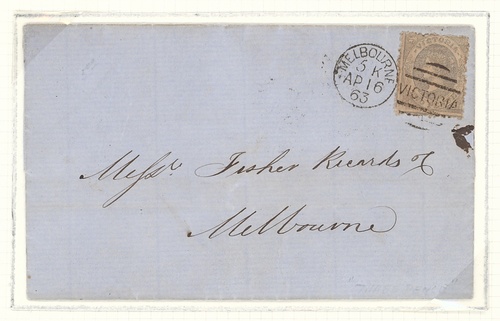 VICTORIA
MELBOURNE
5 K
AP 16
63
VICTORIA
Messrs. Fisher Ricards &
Melbourne